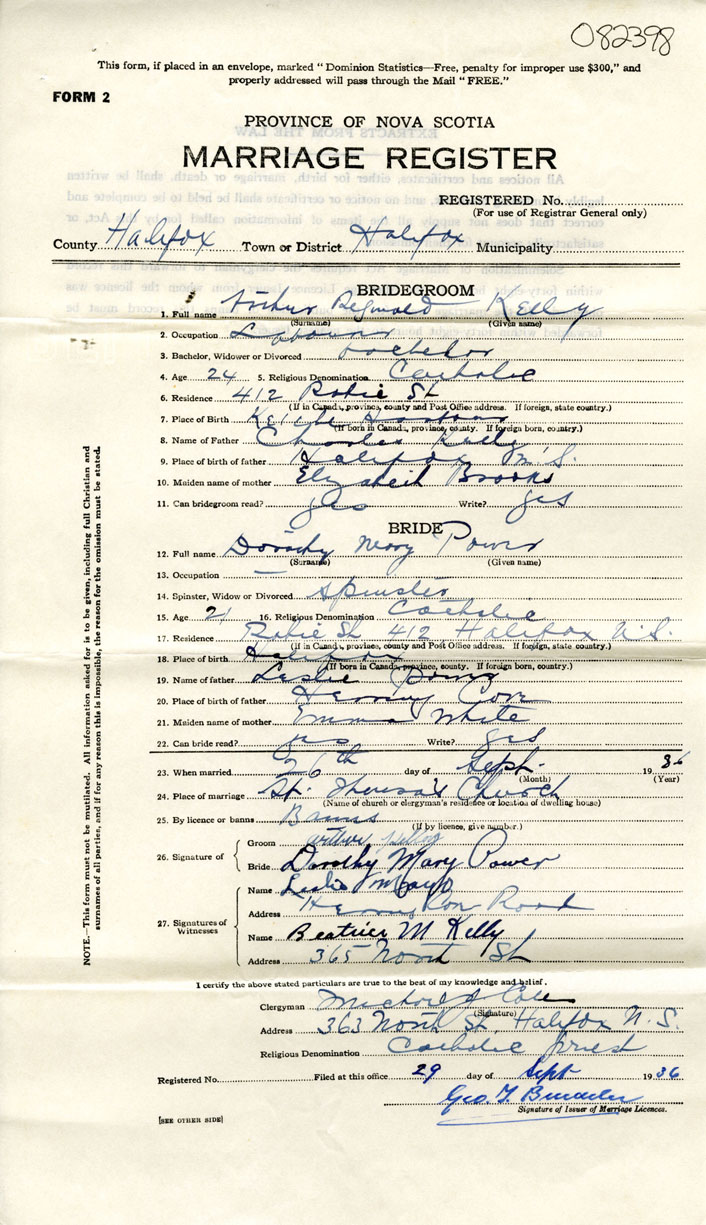 082398
This form, if placed in an envelope, marked "Dominion Statistics—Free, penalty for improper use $300," and
properly addressed will pass through the Mail "FREE."
FORM 2
PROVINCE OF NOVA SCOTIA
MARRIAGE REGISTER
REGISTERED No.
(For use of Registrar General only)
County Halifax Town or District Halifax Municipality
BRIDEGROOM
1. Full name Arthur Reginald Kelly
(Surname) (Given name)
2. Occupation Labourer
3. Bachelor, Widower or Divorced bachelor
4. Age 24 5. Religious Denomination Catholic
6. Residence 412 Robie St
(If in Canada, province, county and Post Office address. If foreign, state country.)
7. Place of Birth
(If born in Canada, province, county. If foreign born, country.)
8. Name of Father Charles Kelly
9. Place of birth of father Halifax N.S.
10. Maiden name of mother Elizabeth Brooks
11. Can bridegroom read? yes Write? yes
BRIDE
12. Full name Dorothy Mary Power
(Surname) (Given name)
13. Occupation —
14. Spinster, Widow or Divorced Spinster
15. Age 21 16. Religious Denomination Catholic
17. Residence Robie St 412 Halifax N.S.
(If in Canada, province, county and Post Office address. If foreign, state country.)
18. Place of birth Halifax
(If born in Canada, province, county. If foreign born, country.)
19. Name of father Leslie Power
20. Place of birth of father Herring Cove
21. Maiden name of mother Emma White
22. Can bride read? yes Write? yes
23. When married 26th day of Sept. 1936
(Month) (Year)
24. Place of marriage St. Theresa's Church
(Name of church or clergyman's residence or location of dwelling house)
25. By licence or banns Banns
(If by licence, give number.)
26. Signature of
Groom Arthur Kelly
Bride Dorothy Mary Power
27. Signatures of Witnesses
Name Leslie Mayo
Address Road
Name Beatrice M Kelly
Address 365 North St
I certify the above stated particulars are true to the best of my knowledge and belief.
Clergyman
(Signature)
Address 363 North St. Halifax N.S.
Religious Denomination Catholic Priest
Registered No. Filed at this office 29 day of Sept 1936
Geo. T.
Signature of Issuer of Marriage Licences.
[SEE OTHER SIDE]
NOTE.—This form must not be mutilated. All information asked for is to be given, including full Christian and
surnames of all parties, and if for any reason this is impossible, the reason for the omission must be stated.